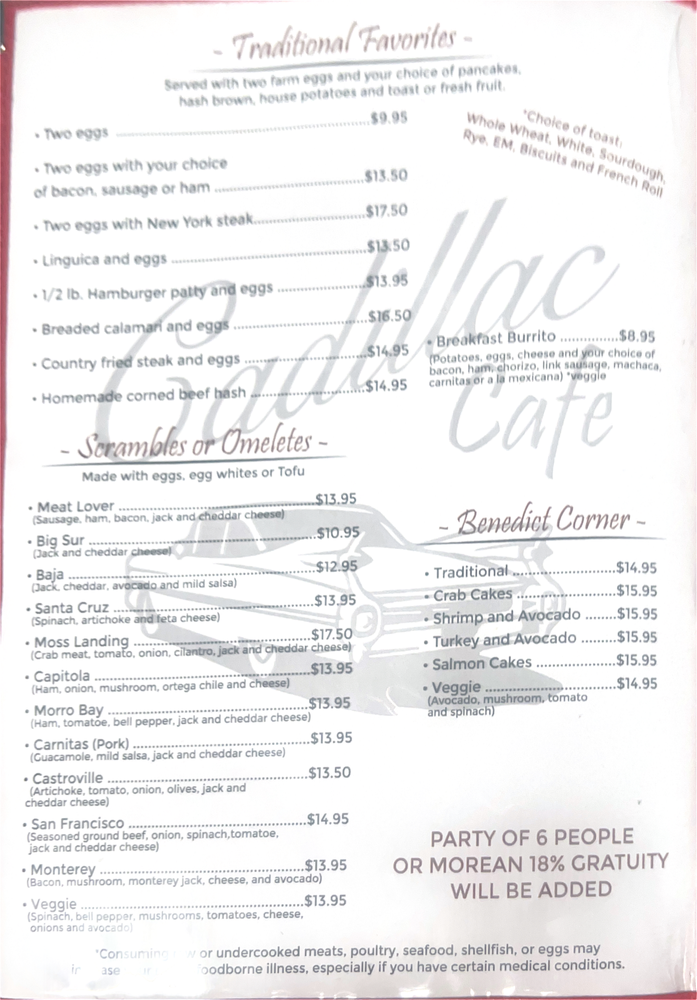 - Traditional Favorites -
Served with two farm eggs and your choice of pancakes,
hash brown, house potatoes and toast or fresh fruit.
• Two eggs ........ $9.95
• Two eggs with your choice
of bacon, sausage or ham ........ $13.50
• Two eggs with New York steak........ $17.50
• Linguica and eggs ........ $13.50
• 1/2 lb. Hamburger patty and eggs ........ $13.95
• Breaded calamari and eggs ........ $16.50
• Country fried steak and eggs ........ $14.95
• Homemade corned beef hash ........ $14.95
*Choice of toast,
Whole Wheat, White, Sourdough,
Rye, EM, Biscuits and French Roll
Cadillac
Cafe
• Breakfast Burrito ........ $8.95
(Potatoes, eggs, cheese and your choice of
bacon, ham, chorizo, link sausage, machaca,
carnitas or a la mexicana) *veggie
- Scrambles or Omeletes -
Made with eggs, egg whites or Tofu
• Meat Lover ........ $13.95
(Sausage, ham, bacon, jack and cheddar cheese)
• Big Sur ........ $10.95
(Jack and cheddar cheese)
• Baja ........ $12.95
(Jack, cheddar, avocado and mild salsa)
• Santa Cruz ........ $13.95
(Spinach, artichoke and feta cheese)
• Moss Landing ........ $17.50
(Crab meat, tomato, onion, cilantro, jack and cheddar cheese)
• Capitola ........ $13.95
(Ham, onion, mushroom, ortega chile and cheese)
• Morro Bay ........ $13.95
(Ham, tomatoe, bell pepper, jack and cheddar cheese)
• Carnitas (Pork) ........ $13.95
(Guacamole, mild salsa, jack and cheddar cheese)
• Castroville ........ $13.50
(Artichoke, tomato, onion, olives, jack and
cheddar cheese)
• San Francisco ........ $14.95
(Seasoned ground beef, onion, spinach,tomatoe,
jack and cheddar cheese)
• Monterey ........ $13.95
(Bacon, mushroom, monterey jack, cheese, and avocado)
• Veggie ........ $13.95
(Spinach, bell pepper, mushrooms, tomatoes, cheese,
onions and avocado)
- Benedict Corner -
• Traditional ........ $14.95
• Crab Cakes ........ $15.95
• Shrimp and Avocado ........ $15.95
• Turkey and Avocado ........ $15.95
• Salmon Cakes ........ $15.95
• Veggie ........ $14.95
(Avocado, mushroom, tomato
and spinach)
PARTY OF 6 PEOPLE
OR MOREAN 18% GRATUITY
WILL BE ADDED
*Consuming or undercooked meats, poultry, seafood, shellfish, or eggs may
illness, especially if you have certain medical conditions.